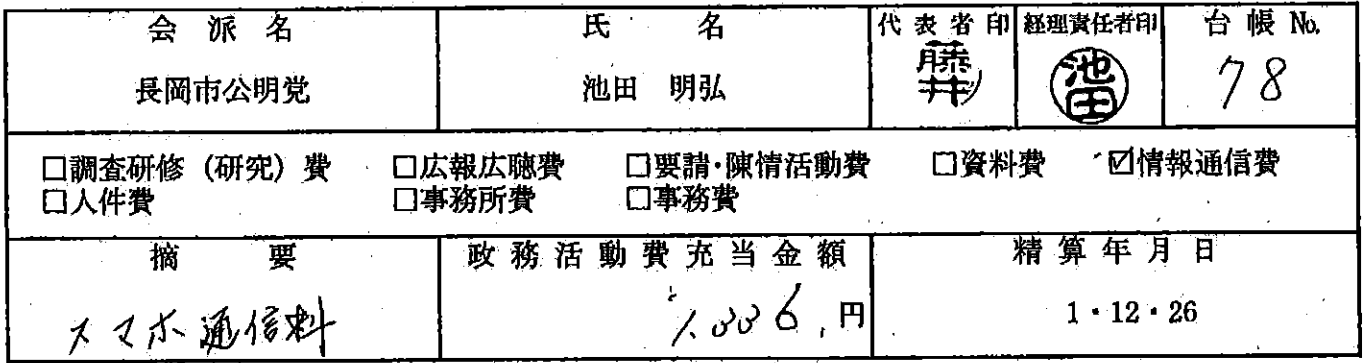 会派名 氏名 代表者印 経理責任者印 台帳No.
長岡市公明党 池田 明弘 藤井 池田 78
□調査研修(研究)費 □広報広聴費 □要請・陳情活動費 □資料費 ☑情報通信費
□人件費 □事務所費 □事務費
摘要 政務活動費充当金額 精算年月日
スマホ通信料 円 1・12・26